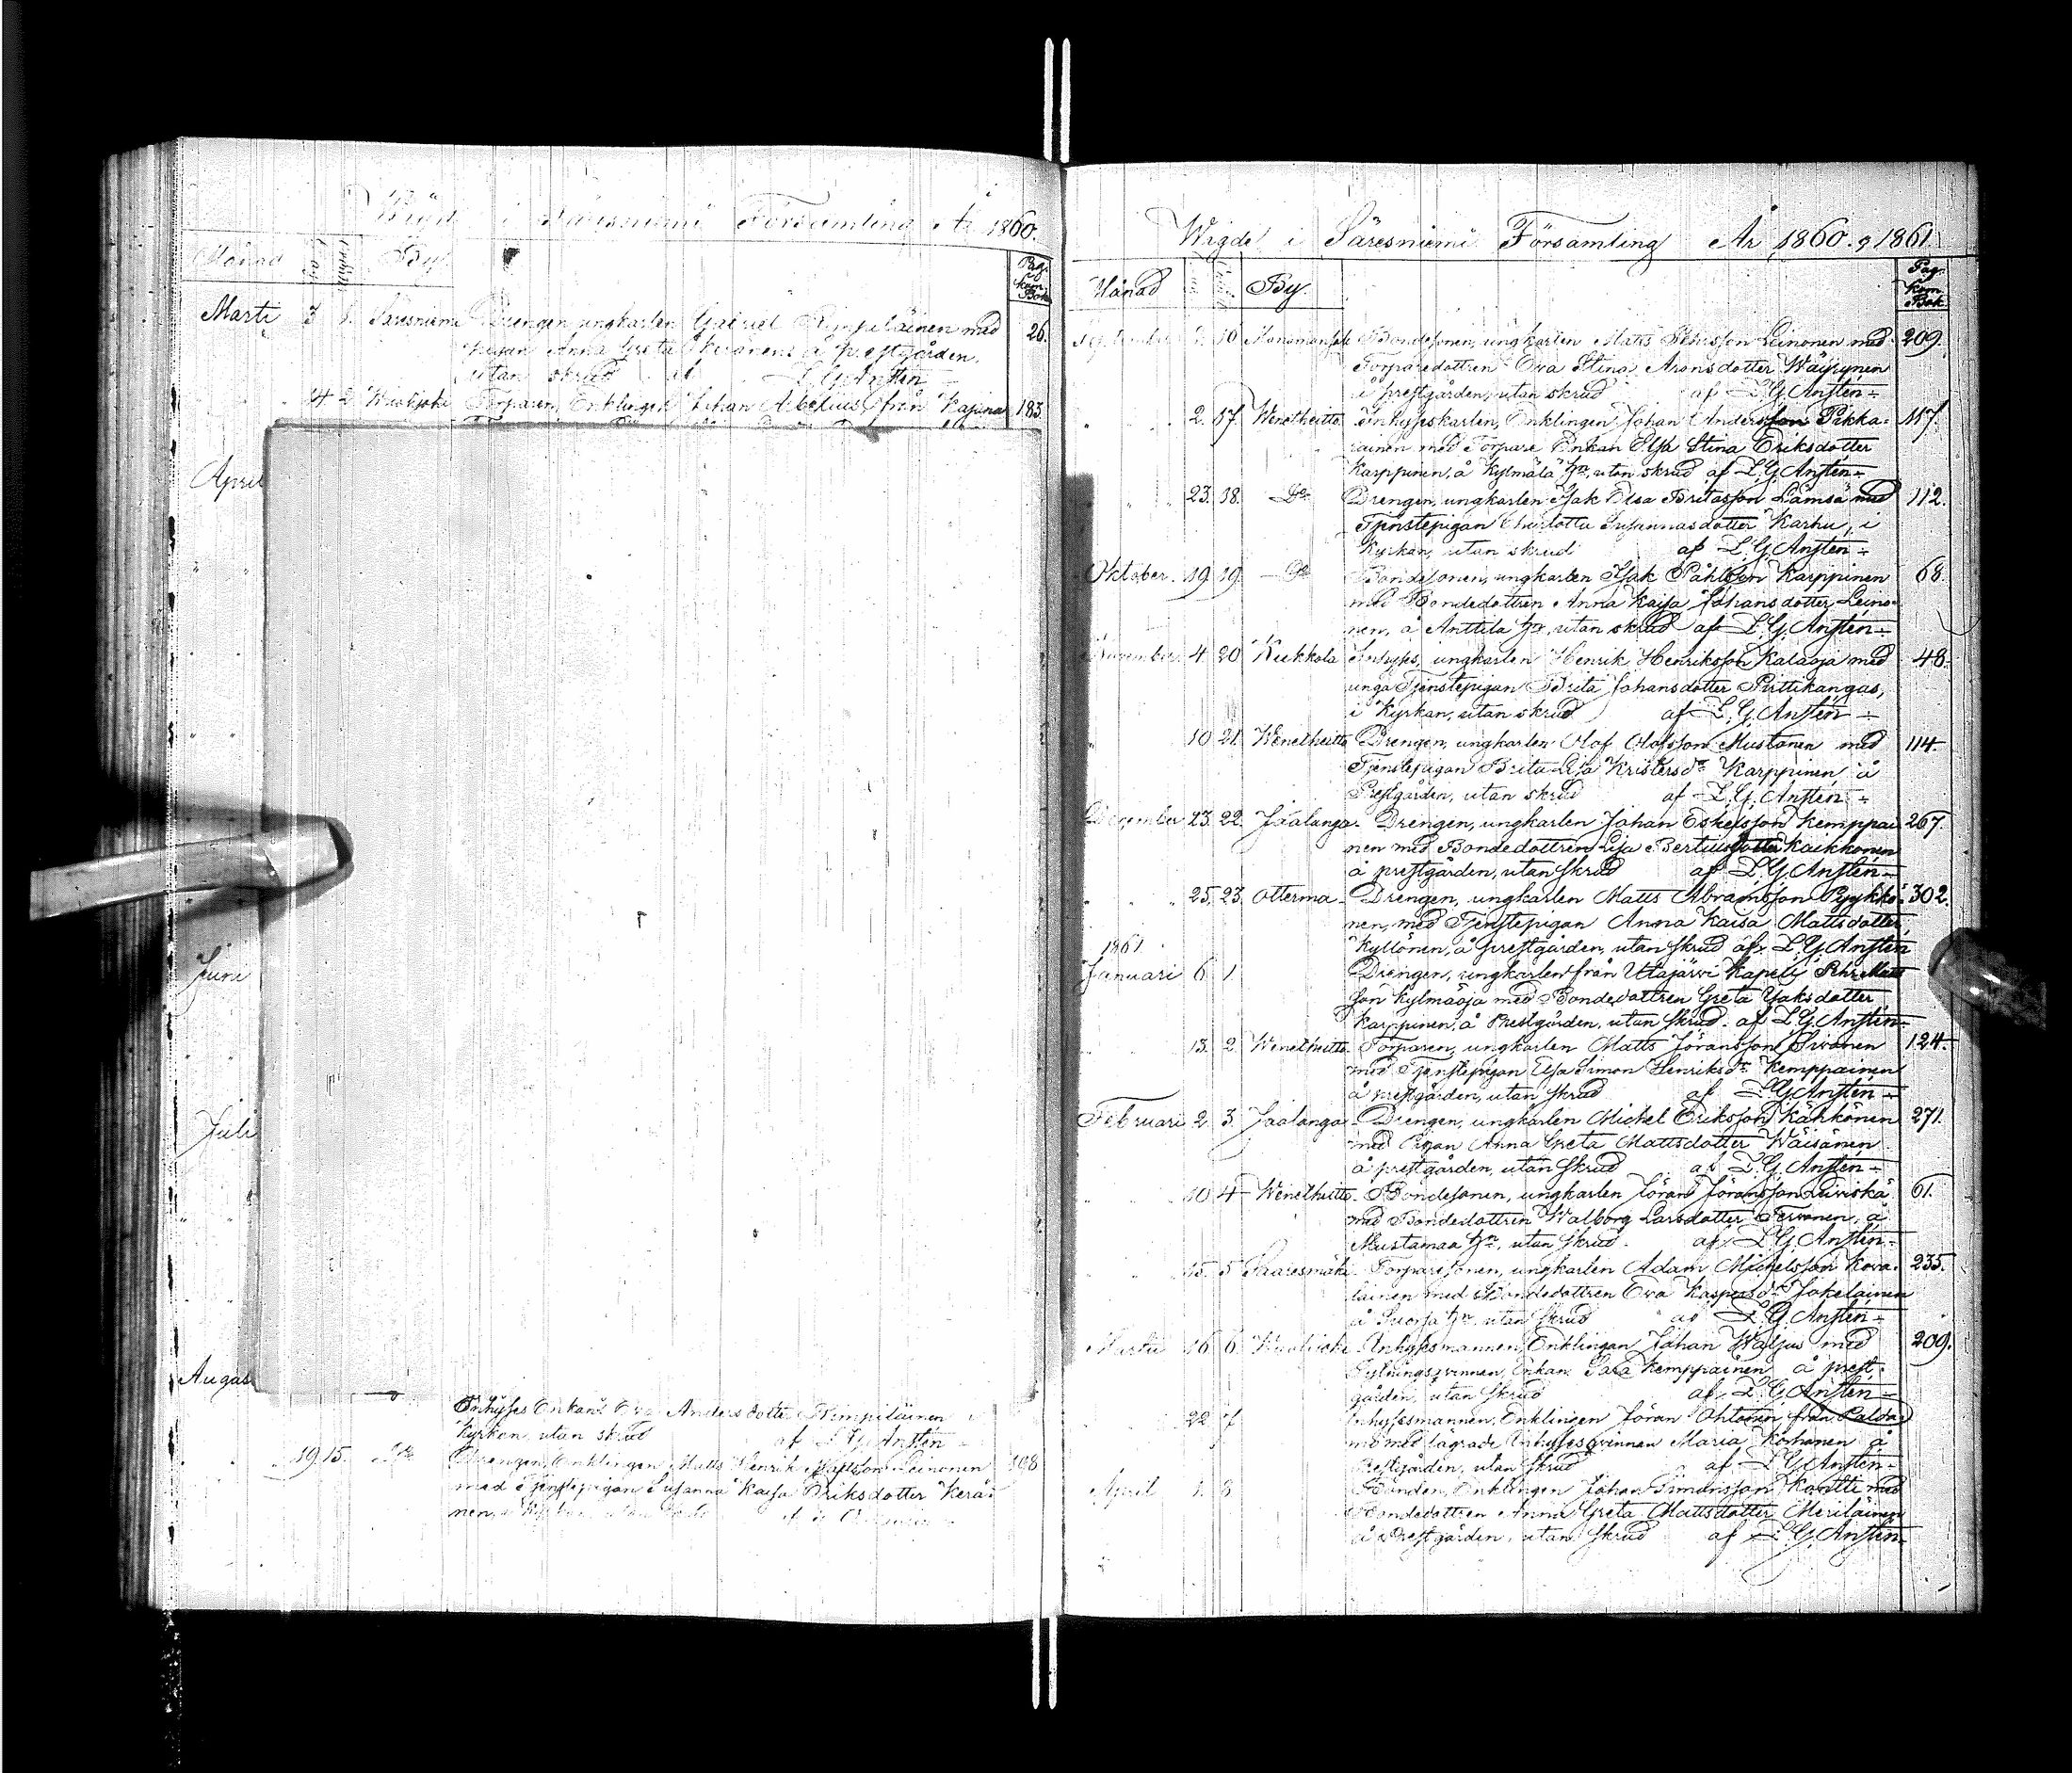 Wigde i Säresniemi Församling År 1860.
Månad By Pag. Kom. Bok
Marti 3 1. Säresniemi Drengen, ungkarlen Gabriel Rimpiläinen med 26.
pigan Anna Greta Keränen å prestgården,
utan skrud af L. G. Anstén
14 2 Wuolijoki Torparen, Enklingen Johan Abelius, från Kajana 183.
April
Juni
Juli
August
Inhyses Enkan Eva Anders dotter Rimpiläinen i
Kyrkan, utan skrud af L. G. Anstén
19 15. Do Drengen, Enklingen Matts Henrik Mattsson Leinonen 108
med Tjenstepigan Susanna Kaisa Eriksdotter Kerä-
nen, i Kyrkan, utan
Wigde i Säresniemi Församling År 1860. o 1861
Månad By. Pag. Kom. Bok
September 2. 16 Manamansalo Bondesonen, ungkarlen Matts Pehrsson Leinonen med 209.
Torparedottren Eva Stina Aronsdotter Wäyrynen
å prestgården, utan skrud af L. G. Anstén
2. 17. Wenetheitto Inhyseskarlen, Enklingen Johan Andersson Pikka- 117.
rainen med Torpare Enkan Elsa Stina Eriksdotter
Karppinen, å Kylmälä hn, utan skrud af L. G. Anstén
23. 18. Do Drengen, ungkarlen Isak Elsa Britasson Lämsä med 112.
Tjenstepigan Charlotta Susannasdotter Karhu, i
Kyrkan, utan skrud af L. G. Anstén
Oktober. 19 19 Do Bondesonen, ungkarlen Isak Påhlsson Karppinen 68.
med Bondedottren Anna Kaisa Johansdotter Leino-
nen, å Anttila hn, utan skrud af L. G. Anstén
November 4. 20 Kukkola Inhyses, ungkarlen Henrik Henriksson Kalaoja med 48.
unga Tjenstepigan Brita Johansdotter Pirttikangas,
i Kyrkan, utan skrud af L. G. Anstén
10 21. Wenetheitto Drengen, ungkarlen Olof Olofsson Mustonen med 114.
Tjenstepigan Brita Lisa Kristersdr Karppinen, å
Prestgården, utan skrud af L. G. Anstén
December 23. 22. Jaalanga. Drengen, ungkarlen Johan Eskelsson Kemppai 267.
nen med Bondedottren Lisa Bertilsdotter Kaikkonen
å prestgården, utan skrud af L. G. Anstén
25. 23. Otterma. Drengen, ungkarlen Matts Abramsson Pyykkö- 302.
nen, med Tjenstepigan Anna Kaisa Mattsdotter
Kyllönen, å prestgården, utan skrud af L. G. Anstén
1861
Januari 6 1 Drengen, ungkarlen från Utajärvi Kapell Pehr Matts
son Kylmäoja med Bondedottren Greta Isaksdotter
Karppinen, å Prestgården, utan skrud. af L. G. Anstén
13. 2 Wenetheitto. Torparen, ungkarlen Matts Göransson Sivonen 124.
med Tjenstepigan Elsa Simon Henriksdr Kemppainen
å prestgården, utan skrud af L. G. Anstén
Februari 2 3. Jaalanga. Drengen, ungkarlen Michel Eriksson Kähkönen 271.
med Pigan Anna Greta Mattsdotter Wäisänen
å prestgården, utan skrud af L. G. Anstén
10 4 Wenetheitto. Bondesonen, ungkarlen Göran Göransson Leiviskä 61.
med Bondedottren Walborg Larsdotter Tervonen, å
Mustamaa hn, utan skrud. af L. G. Anstén
15. 5 Saaresmäki. Torparesonen, ungkarlen Adam Michelsson Kova- 235.
lainen med Bondedottren Eva Kaspersdr Jokelainen
å Suorsa hn, utan skrud af L. G. Anstén
Martii 16 6. Wuolijoki Inhysesmannen, Enklingen Johan Waljus med 209.
Enkan Sara Kemppainen å prest-
gården, utan skrud af L. G. Anstén
22 7 Inhysesmannen, Enklingen Göran Ohtonen, från Paldamo
med lägrade Inhyses qvinnan Maria Korhonen å
Prestgården, utan skrud af L. G. Anstén
April 1. 8 Bonden, Enklingen Johan Simonsson Kontti med
Bondedottren Anna Greta Mattsdotter Meriläinen
å Prestgården, utan skrud af L. G. Anstén